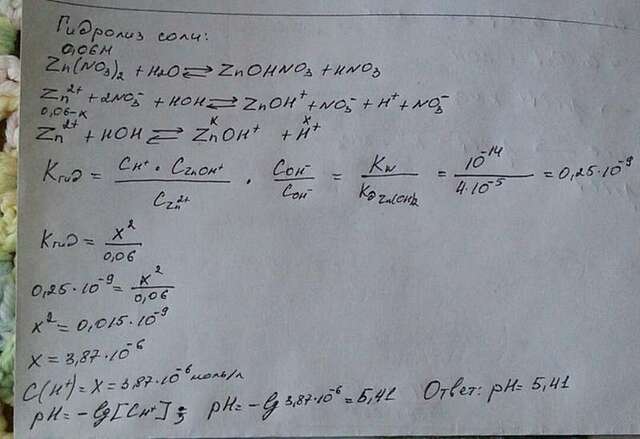 Гидролиз соли:
0,06М
Zn(NO₃)₂ + H₂O ⇄ ZnOHNO₃ + HNO₃
Zn²⁺ + 2NO₃⁻ + HOH ⇄ ZnOH⁺ + NO₃⁻ + H⁺ + NO₃⁻
0,06-x x x
Zn²⁺ + HOH ⇄ ZnOH⁺ + H⁺
Kгид = CH⁺ · CZnOH⁺ / CZn²⁺ · COH⁻ / COH⁻ = Kw / KдZn(OH)2 = 10⁻¹⁴ / 4·10⁻⁵ = 0,25·10⁻⁹
Kгид = x² / 0,06
0,25·10⁻⁹ = x² / 0,06
x² = 0,015·10⁻⁹
x = 3,87·10⁻⁶
C(H⁺) = x = 3,87·10⁻⁶ моль/л
pH = -lg[CH⁺]; pH = -lg 3,87·10⁻⁶ = 5,41 Ответ: pH = 5,41